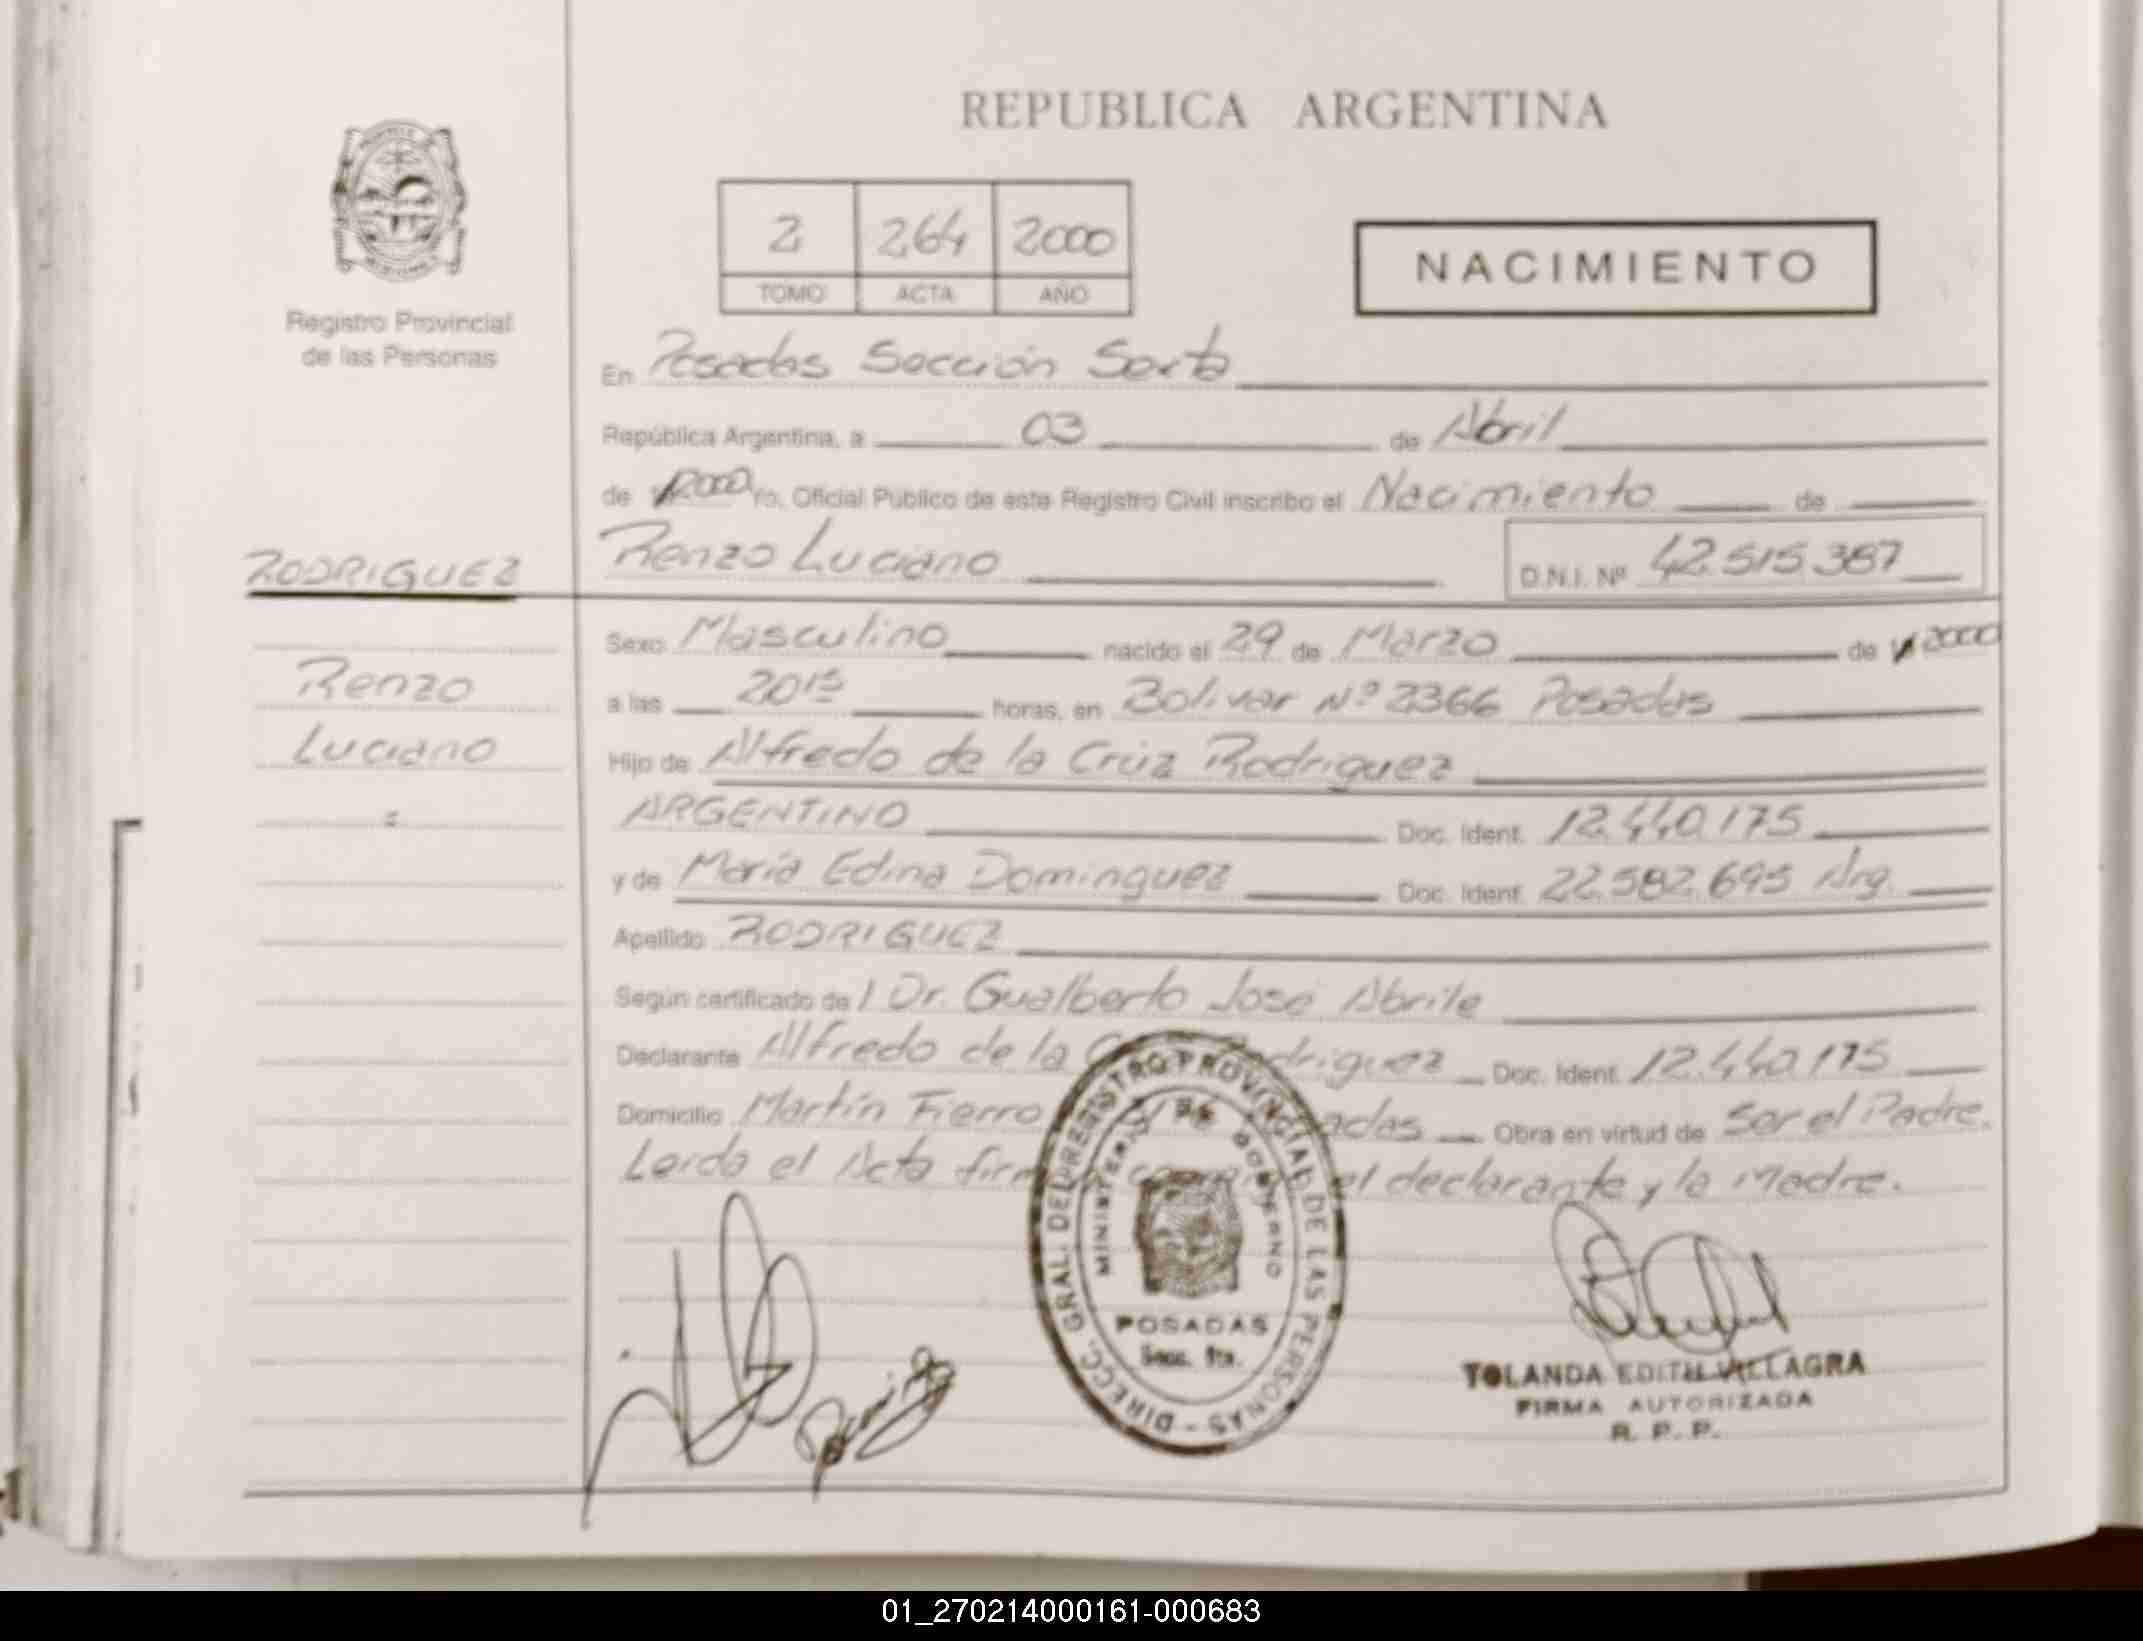 REPUBLICA ARGENTINA
2 264 2000
TOMO ACTA AÑO
NACIMIENTO
Registro Provincial
de las Personas
En Posadas Sección Sexta
República Argentina, a 03 de Abril
de 2000 Yo, Oficial Público de este Registro Civil inscribo el Nacimiento de
RODRIGUEZ
Renzo Luciano D.N.I. Nº 42.515.387
Sexo Masculino nacido el 29 de Marzo de 2000
Renzo
a las 2015 horas, en Bolivar Nº 2366 Posadas
Luciano
Hijo de Alfredo de la Crúz Rodriguez
=
ARGENTINO Doc. Ident. 12.440.175
y de María Edina Dominguez Doc. Ident. 22.582.695 Arg.
Apellido RODRIGUEZ
Según certificado de l Dr. Gualberto José Abrile
Declarante Alfredo de la Rodriguez Doc. Ident. 12.440.175
Domicilio Martín Fierro Obra en virtud de Ser el Padre.
Leída el Acta el declarante y la Madre.
DIRECC. GRAL. DEL REGISTRO PROVINCIAL DE LAS PERSONAS -
MINISTERIO DE GOBIERNO
POSADAS
Secc. 6ta.
YOLANDA EDITH VILLAGRA
FIRMA AUTORIZADA
R. P. P.
01_270214000161-000683